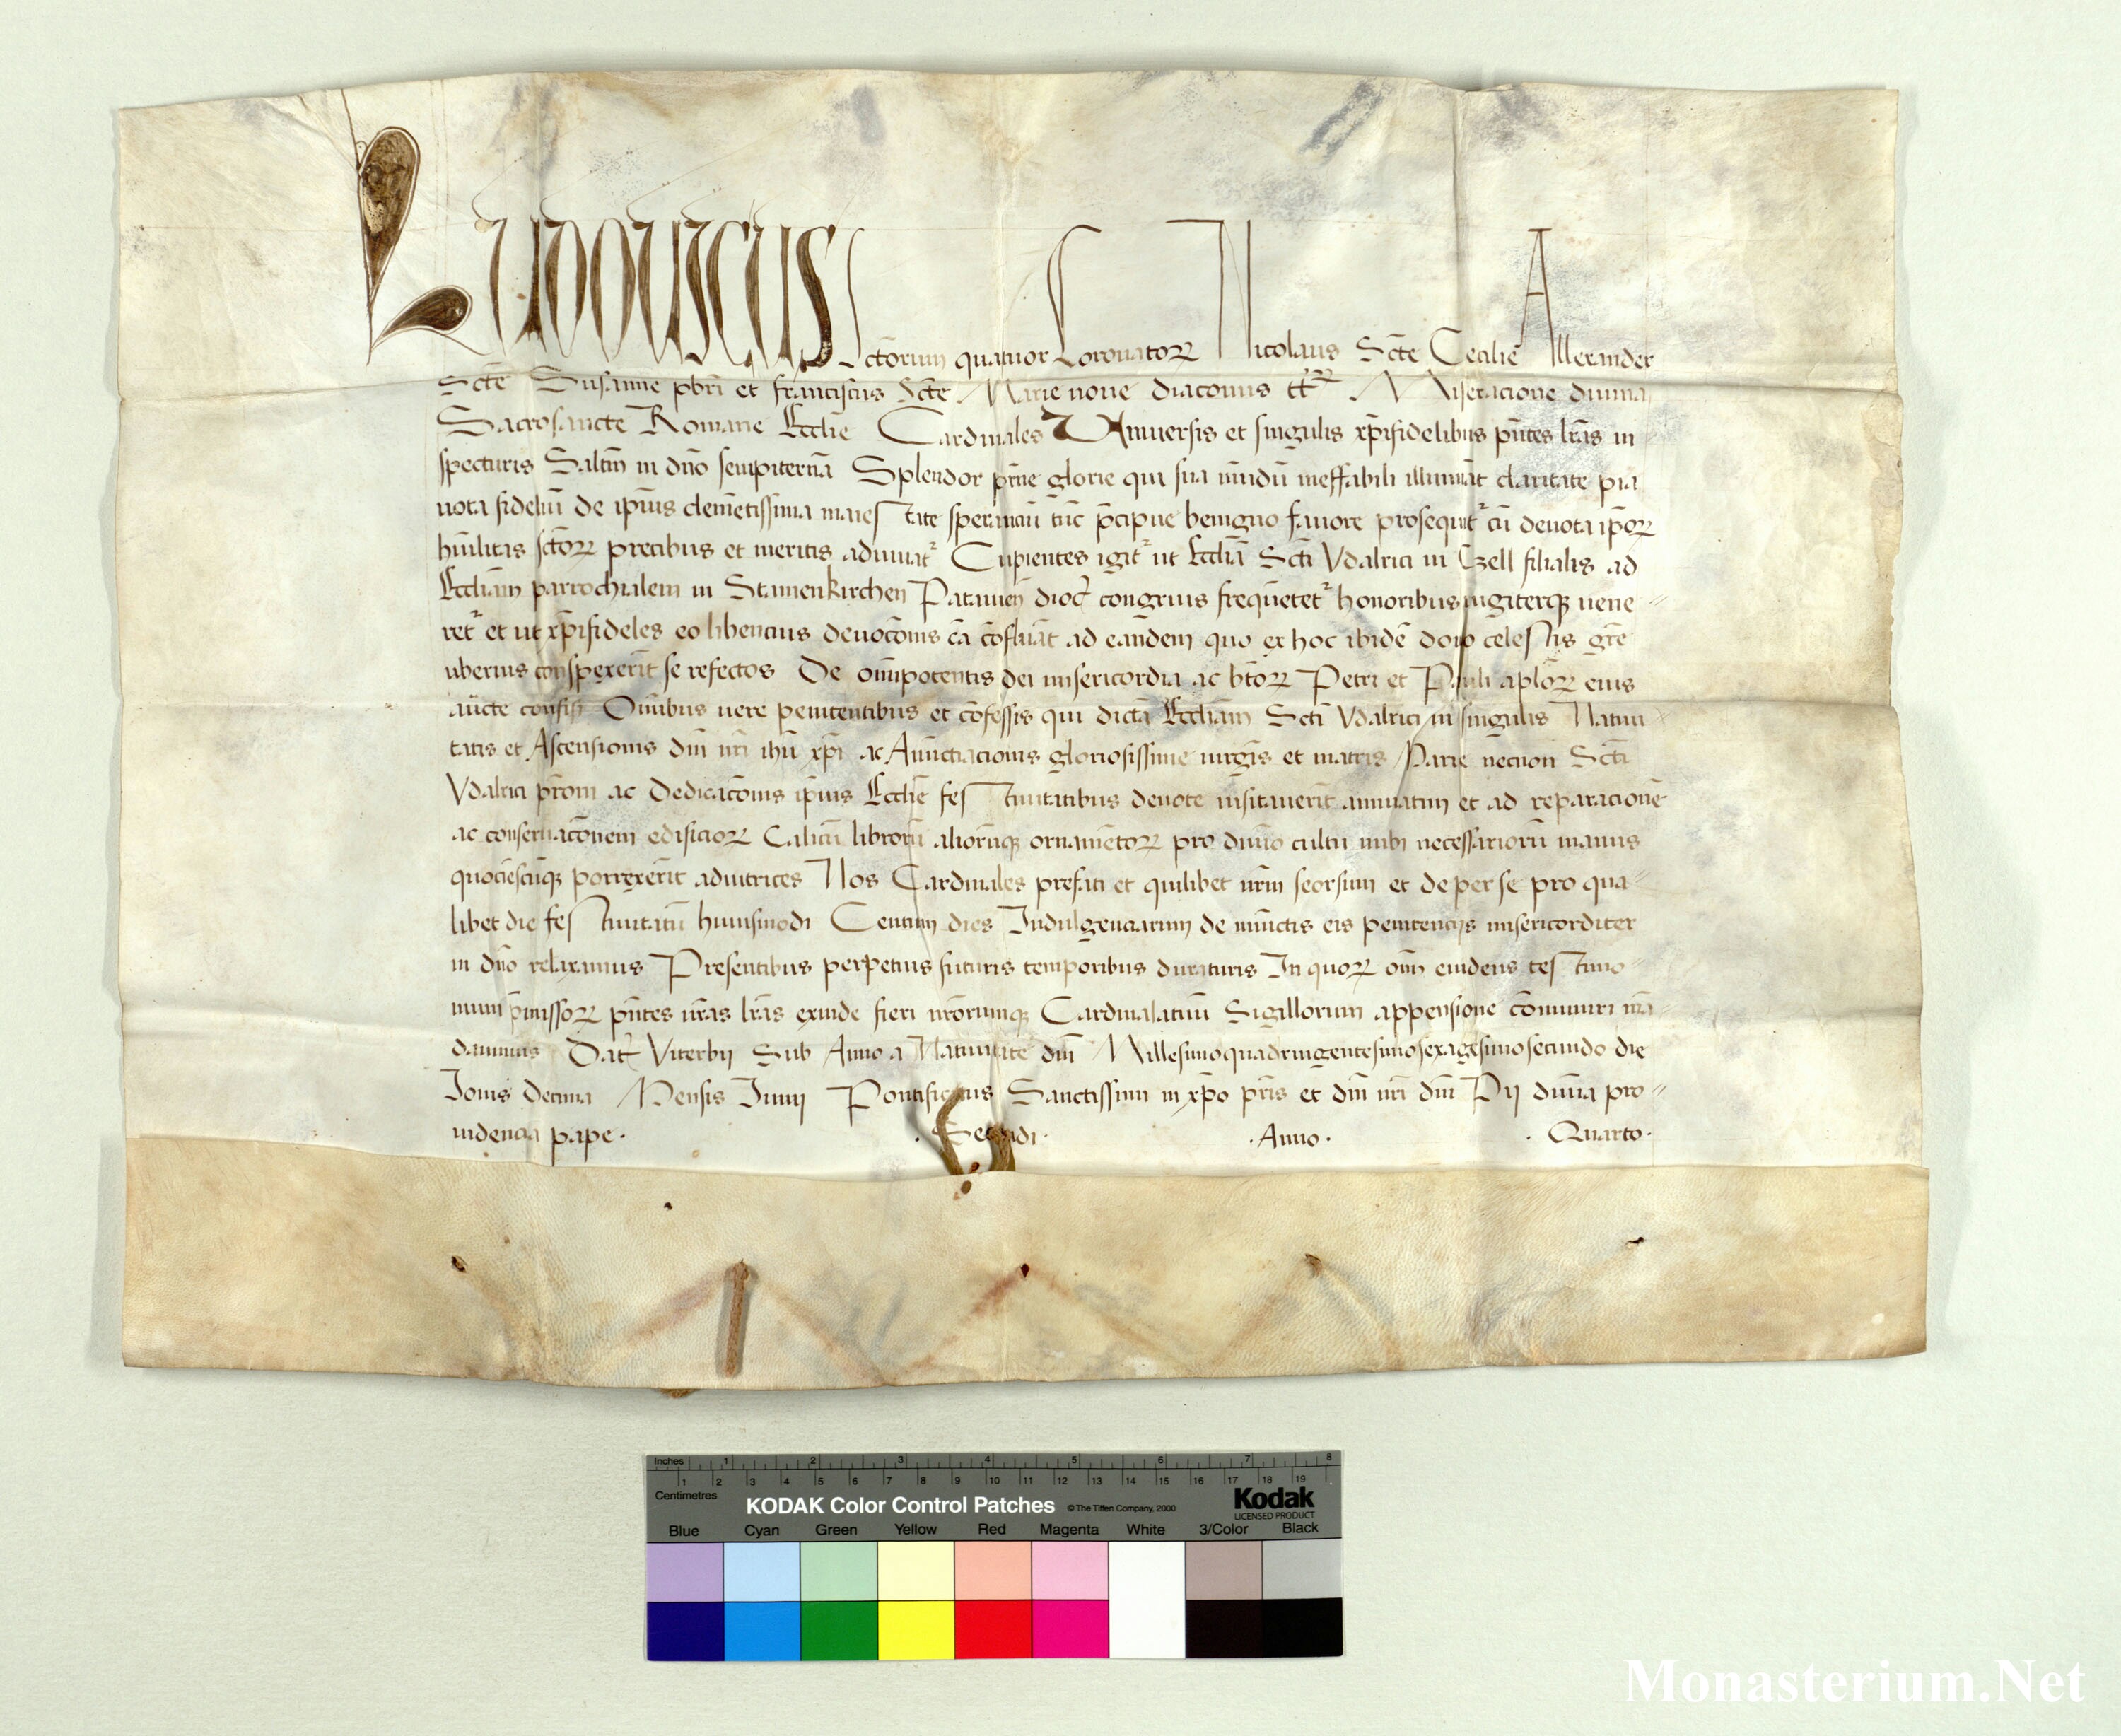 Ludouicus Sctorum quatuor Coronatoꝝ Nicolaus Scte Cecilie Allexander
Scte Susanne pbri et franciscus Scte Marie noue diaconus ttꝝ Miseracione diuina
Sacrosancte Romane Ecclie Cardinales Vniuersis et singulis xpifidelibus pntes lras in
specturis Saltm in dno sempiterna Splendor prne glorie qui sua mundu ineffabili illuminat claritate pia
uota fideliu de ipius clemetissima maiestate sperancium tuc pcipue benigno fauore prosequit cu deuota ipoꝝ
hulitas sctoꝝ precibus et meritis adiuuat Cupientes igit ut Ecclia Scti Vdalrici in Czell filialis ad
Eccliam parrochialem in Stamenkirchen Patauien dioc congruis frequetet honoribus iugiterqꝫ uene
ret et ut xpifideles eo libencius deuocois ca cofluat ad eandem quo ex hoc ibide dono celestis gre
uberius conspexerit se refectos De omipotentis dei misericordia ac btoꝝ Petri et Pauli aploꝝ eius
aucte confisi Omibus uere penitentibus et cofessis qui dicta Eccliam Scti Vdalrici in singulis Natiui
tatis et Ascensionis dni nri ihu xpi ac Anuctiacionis gloriosissime uirgis et matris Marie necnon Scti
Vdalrici proni ac Dedicacois ipius Ecclie festiuitatibus deuote uisitauerit annuatim et ad reparacione
ac conseruacionem edificioꝝ Calicu libroru alioruqꝫ ornametoꝝ pro diuino cultu inibi necessarioru manus
quociescuqꝫ porrexerit adiutrices Nos Cardinales prefati et quilibet nrm seorsum et de per se pro qua
libet die festiuitatu huiusmodi Centum dies Indulgenciarum de iniuctis eis penitencijs misericorditer
in dno relaxamus Presentibus perpetuis futuris temporibus duraturis In quoꝝ om euidens testimo
nium pmissoꝝ pntes nras lras exinde fieri nrorumqꝫ Cardinalatuu Sigillorum appensione comuniri ma
damus Dat Viterbij Sub Anno a Natiuitate dni Millesimoquadringentesimosexagesimosecundo die
Iouis decima Mensis Iunij Pontificatus Sanctissimi in xpo pris et dni nri dni Pij diuina pro
uidencia pape · · Secundi · · Anno · · Quarto ·
Inches 1 2 3 4 5 6 7 8
1 2 3 4 5 6 7 8 9 10 11 12 13 14 15 16 17 18 19
Centimetres
KODAK Color Control Patches © The Tiffen Company, 2000 Kodak
LICENSED PRODUCT
Blue Cyan Green Yellow Red Magenta White 3/Color Black
Monasterium.Net